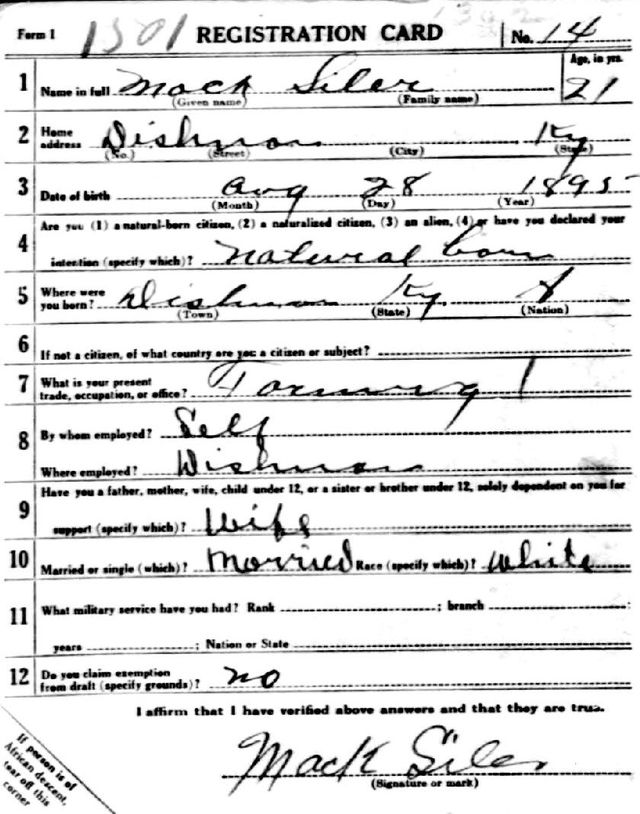 Form 1 1301 REGISTRATION CARD No. 14
1 Name in full Mack Siler Age, in yrs. 21
(Given name) (Family name)
2 Home address Dishman Ky
(No.) (Street) (City) (State)
3 Date of birth Aug 28 1895
(Month) (Day) (Year)
4 Are you (1) a natural-born citizen, (2) a naturalized citizen, (3) an alien, (4) or have you declared your
intention (specify which)? natural born
5 Where were you born? Dishman Ky.
(Town) (State) (Nation)
6 If not a citizen, of what country are you a citizen or subject?
7 What is your present trade, occupation, or office? Farming
8 By whom employed? Self
Where employed? Dishman
9 Have you a father, mother, wife, child under 12, or a sister or brother under 12, solely dependent on you for
support (specify which)? Wife
10 Married or single (which)? Married Race (specify which)? White
11 What military service have you had? Rank ; branch ;
years ; Nation or State
12 Do you claim exemption from draft (specify grounds)? no
I affirm that I have verified above answers and that they are true.
Mack Siler
(Signature or mark)
If person is of
African descent,
tear off this
corner